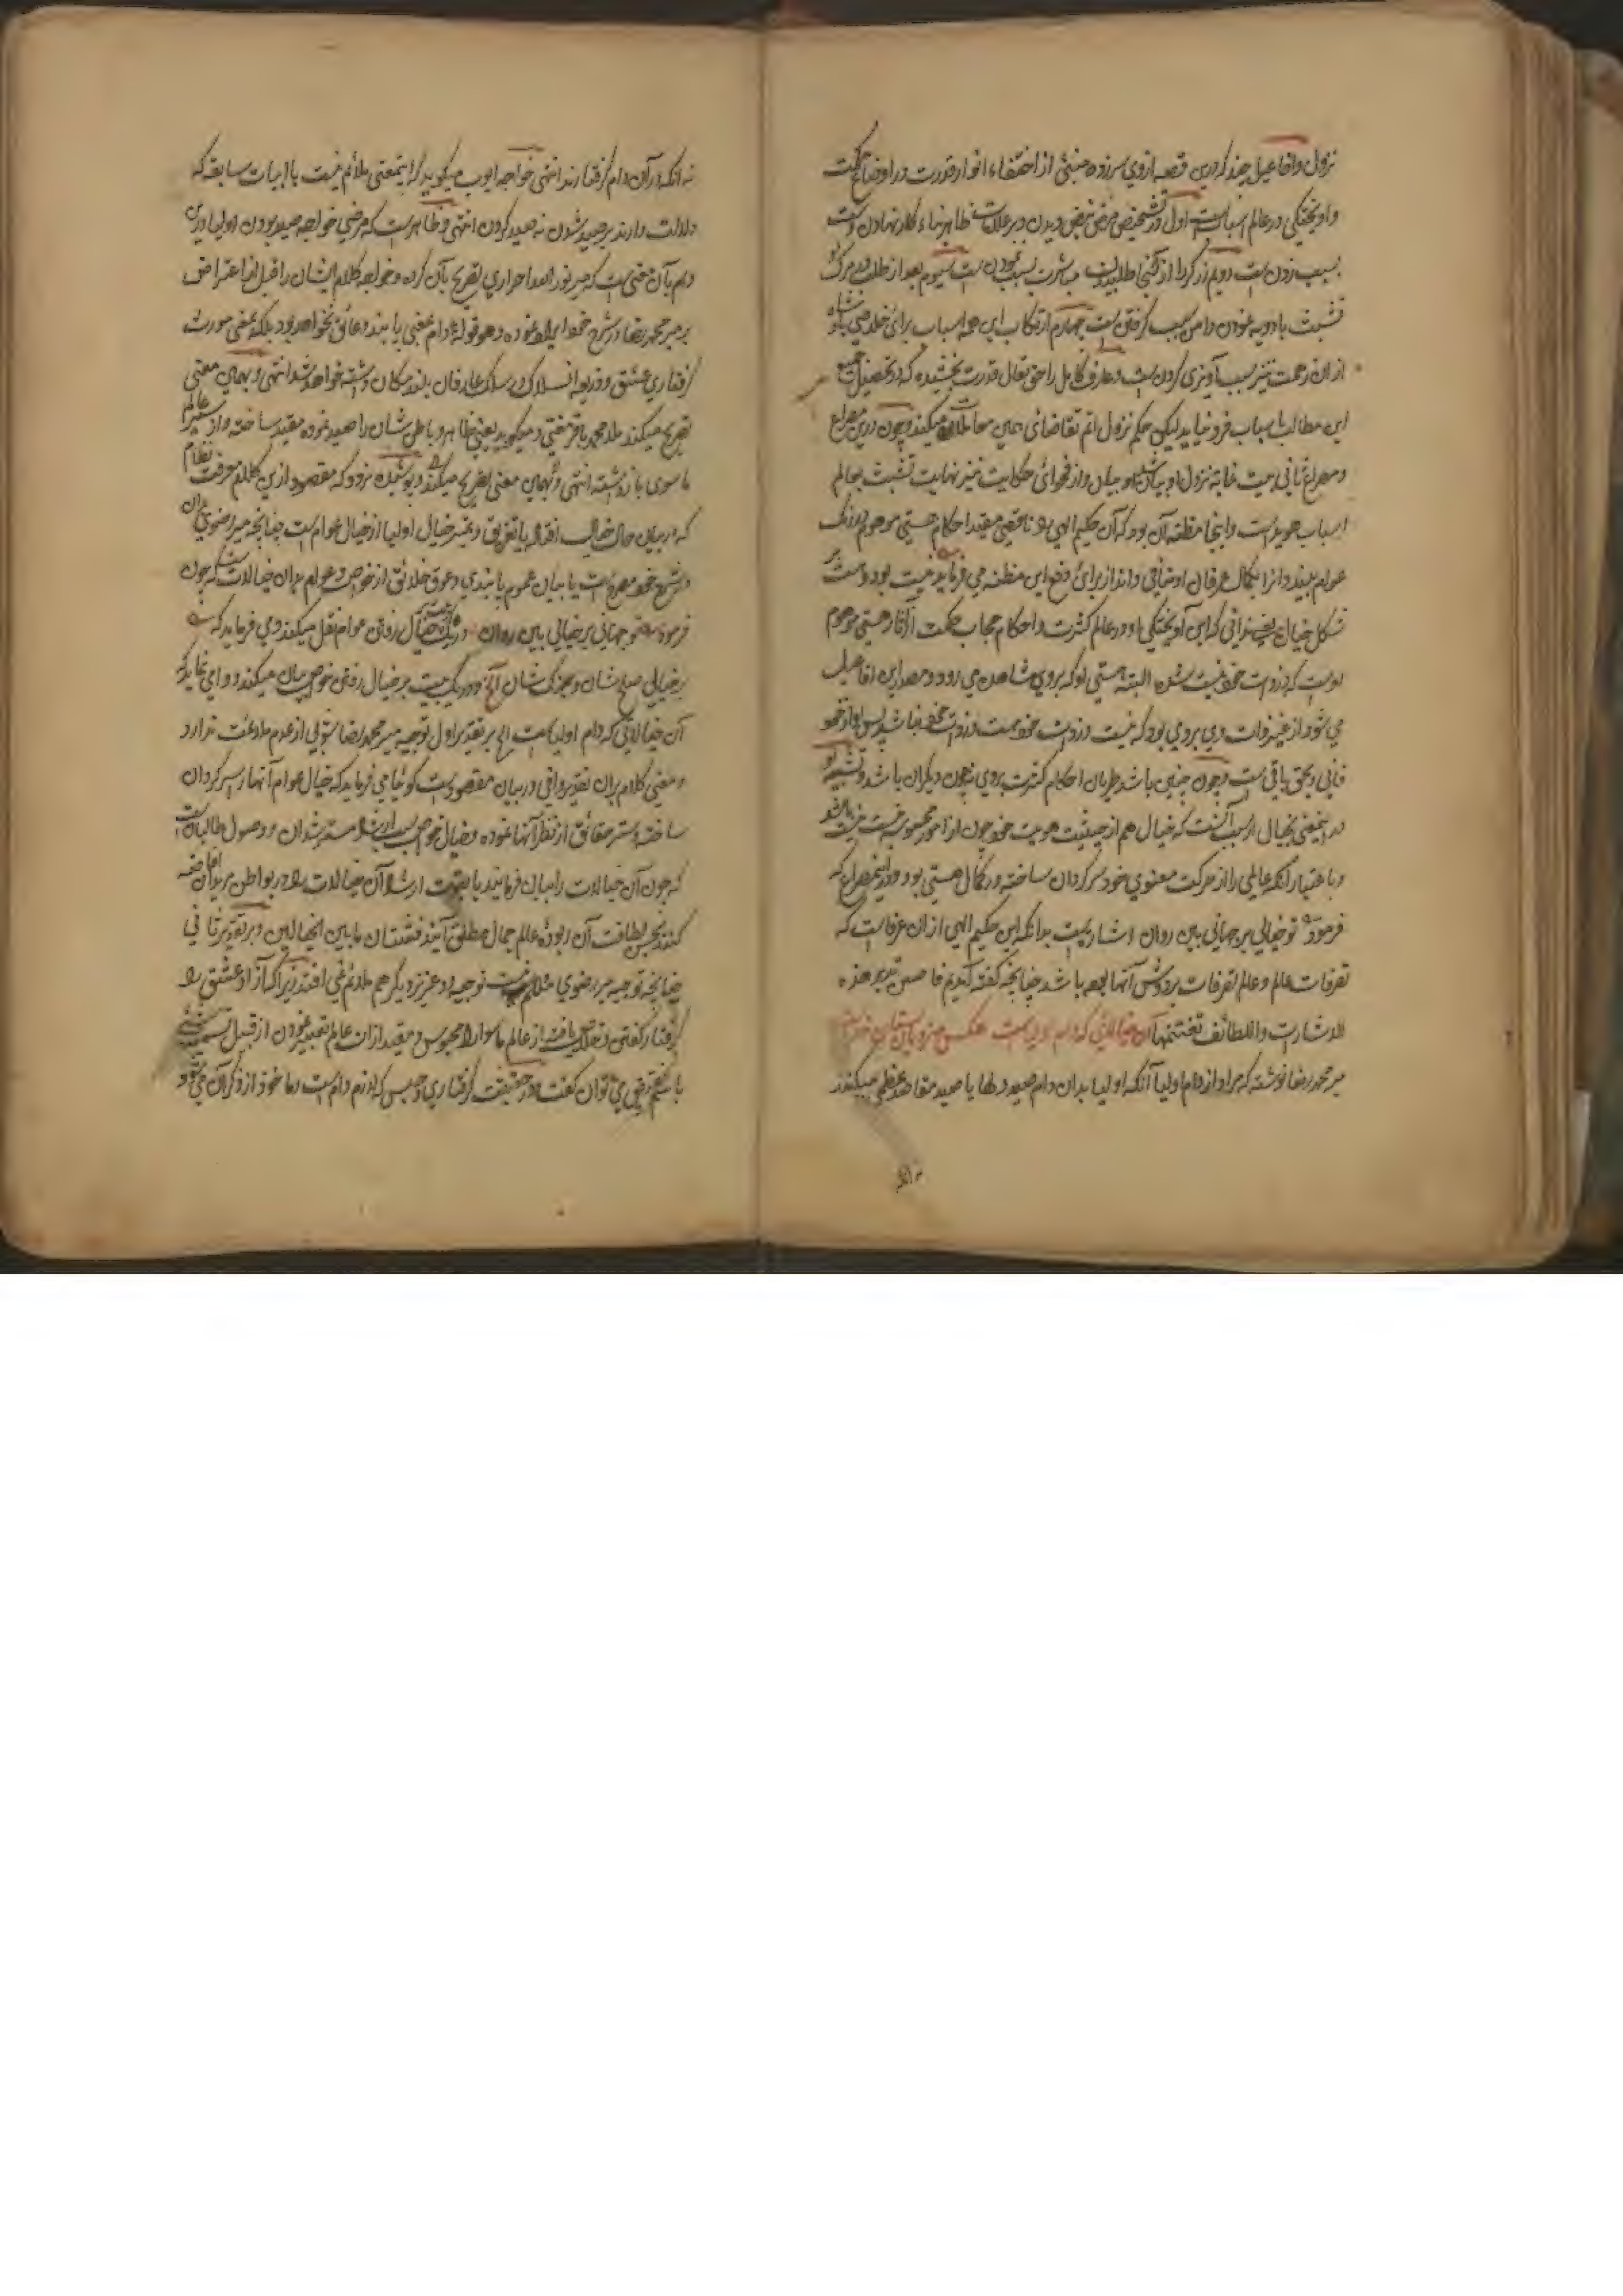 نزول وافاعیل چند که درین قصه ازوی سرزده منبئی از اختفاء انوار قدرت در اوضاع حکمت
واویختگی در عالم اسباب است اول در تشخیص مرض نبض دیدن و بر علامات ظاهر بناء کار نهادن دست
بسبب زدن است دویم زرگر را از طلبیدن مباشرت سبب نمودن است سیوم بعد از طلب در مرگ او
تشبث بادویه نمودن دامن سبب گرفتن است چهارم ارتکاب این همه اسباب برای خلاصی
ازان زحمت نیز سبب آویزی کردن است و عارف کامل را حق تعالی قدرت بخشیده که در تحصیل جمیع
این مطالب باسباب فرو نیاید لیکن حکم نزول اتم تقاضای همین معاملات میکند و چون درین مصراع
و مصراع ثانی بیت غایة نزول او بیان و از فحوای حکایت نیز نهایت تشبث بعالم
اسباب هویداست و اینجا مظنه آن بود که آن حکیم الهی را ناقصی مقید احکام هستی موهوم در رنگ
عوام بیند و از کمال عرفان او غافل ماند از برای دفع این مظنه می فرماید نیست
شکل خیال یعنی ندانی که این آویختگی او در عالم کثرت و احکام حجاب حکمت از آثار هستی موهوم
اوست که در ذات حق نیست شده البته هستی او که بروی مشاهده می رود و مصدر این افاعیل
می شود از فیض ذات
فانی و بحق باقی است و چون چنین باشد جریان احکام کثرت بروی نه چون دیگران باشد و تشبیه او
در اینمعنی بخیال از سبب آنست که خیال هم از حیثیت هویت خود چون از امور محسوسه نیست
و باعتبار آنکه عالمی را از حرکت معنوی خود سرگردان ساخته در کمال هستی بود و در اینمصراع که
فرموده تو خیالی بر جهانی بین روان اشارتیست بدانکه این حکیم الهی ازان عرفاست که
تصرفات عالم و عالم تصرفات بردوش آنها باشد چنانچه گفته آمدیم فاحسن تدبر هذه
الاشارت واللطائف تغتنمها آن خیالاتی که دام اولیاست عکس مهرویان بستان خداست
میر محمد رضا نوشته که مراد از دام اولیا آنکه اولیا بدان دام صید دلها یا صید مقاصد عظمی میکنند
نه آنکه
نه آنکه در آن دام گرفتارند انتهی خواجه ایوب میگوید که اینمعنی ملائم نیست با ابیات سابقه که
دلالت دارند بر صید شدن نه صید کردن انتهی و ظاهر است که مرضی خواجه صید بودن اولیا درین
دام بآن معنی است که میر نور الله احراری تصریح بآن کرده و خواجه کلام ایشان را قبل از اعتراض
بر میر محمد رضا در شرح خود ایراد نموده و هو قوله دام بمعنی پابند و عائق نخواهد بود بلکه بمعنی مورث
گرفتاری عشق و ذریعه انسلاک در سلک عارفان بلند مکان وشته خواهد شد انتهی و بهمین معنی
تصریح میکند ملا محمد باقر مفتی و میگوید یعنی ظاهر و باطن شان را صید نموده مقید ساخته و از سیر عالم
ماسوی باز داشته انتهی و بهمین معنی تصریح میکند و پوشیده نرود که مقصود ازین کلام معرفت نظام
که در بیان حال خیالیست افتاده یا تفریق و تمیز خیال اولیا از خیال عوام است چنانچه میر رضوی دران
در شرح خود مصرح است یا بیان عموم پابندی و عوق خلائق از خواص و عوام بدان خیالات پس که چون
فرموده تو جهانی بر خیالی بین روان در یک بیت خیال روش عوام نقل میکند و می فرماید که
بر خیالی صلح شان و جنگ شان الخ و در یک بیت بر خیال روش خواص بیان میکند و وامی نماید که
آن خیالاتی که دام اولیاست الی بر تقدیر اول توجیه میر محمد رضا شولی از عدم ملائمت ندارد
و معنی کلام بران تقدیر وافی در بیان مقصود است گوئیا می فرماید که خیال عوام آنها را سرگردان
ساخته و ستر حقائق از نظر آنها نموده و خیال خواص سبب ارشاد مسترشدان و وصول طالبان است
که چون آن خیالات را بیان فرمایند یا بقوت ارشاد آن خیالات را در بواطن مریدان افاضه
کنند بحسن لطافت آن ربوده عالم جمال مطلق آیند فشتان مابین الخیالین و بر تقدیر ثانی
چنانچه توجیه میر رضوی ملائم نیست توجیه او عزیز دیگر هم ملائم نمی افتد زیرا که آزاد عشق را
گرفتار گفتن و خلاص یافته از عالم ماسوا را محبوس و مقید ازان عالم تعبیر نمودن از قبیل تسمیه شیئ
باسم نقیض می توان گفت و در حقیقت گرفتاری و حبس که لازم دام است و ماخوذ از ذکر آن می شود